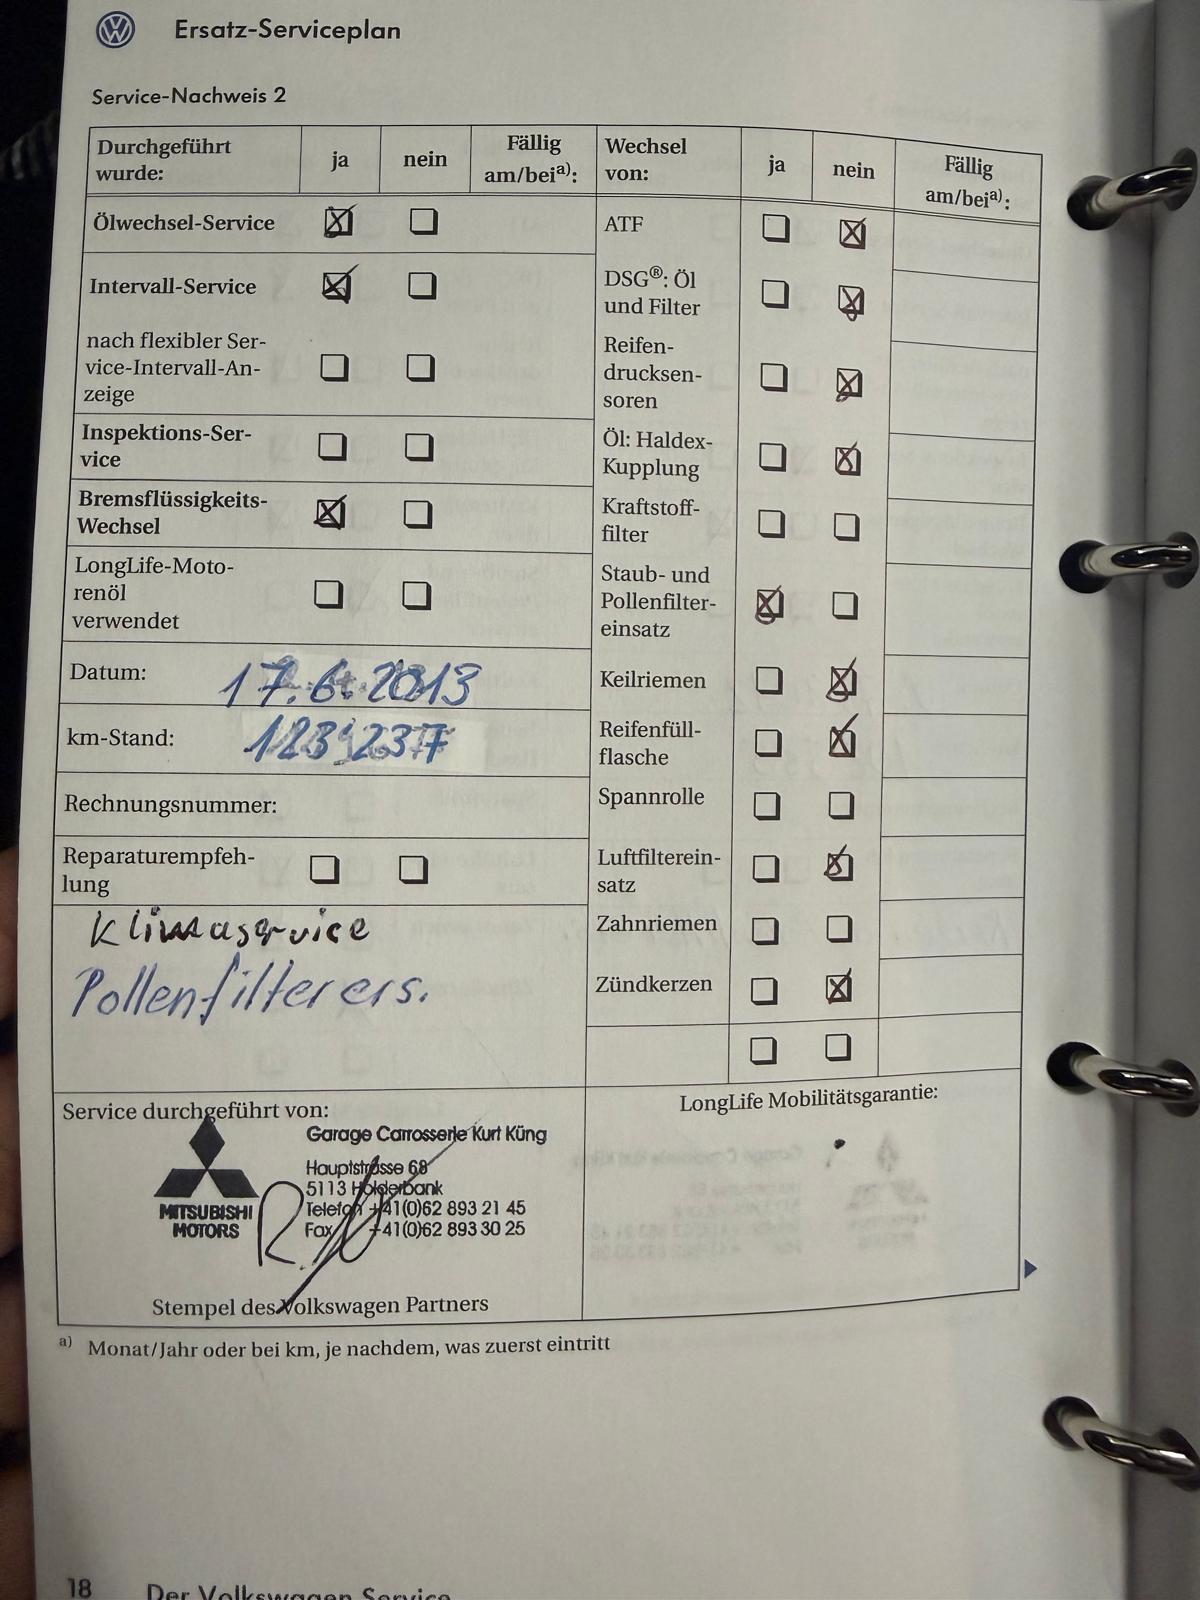 Ersatz-Serviceplan
Service-Nachweis 2
Durchgeführt wurde:
ja
nein
Fällig am/bei a):
Ölwechsel-Service
Intervall-Service
nach flexibler Ser-
vice-Intervall-An-
zeige
Inspektions-Ser-
vice
Bremsflüssigkeits-
Wechsel
LongLife-Moto-
renöl
verwendet
Datum: 17.6.2013
km-Stand: 123'237
Rechnungsnummer:
Reparaturempfeh-
lung
Klimaservice
Pollenfilter ers.
Wechsel von:
ja
nein
Fällig am/bei a):
ATF
DSG®: Öl
und Filter
Reifen-
drucksen-
soren
Öl: Haldex-
Kupplung
Kraftstoff-
filter
Staub- und
Pollenfilter-
einsatz
Keilriemen
Reifenfüll-
flasche
Spannrolle
Luftfilterein-
satz
Zahnriemen
Zündkerzen
Service durchgeführt von:
MITSUBISHI
MOTORS
Garage Carrosserie Kurt Küng
Hauptstrasse 68
5113 Holderbank
Telefon +41(0)62 893 21 45
Fax +41(0)62 893 30 25
Stempel des Volkswagen Partners
LongLife Mobilitätsgarantie:
a) Monat/Jahr oder bei km, je nachdem, was zuerst eintritt
18 Der Volkswagen Service